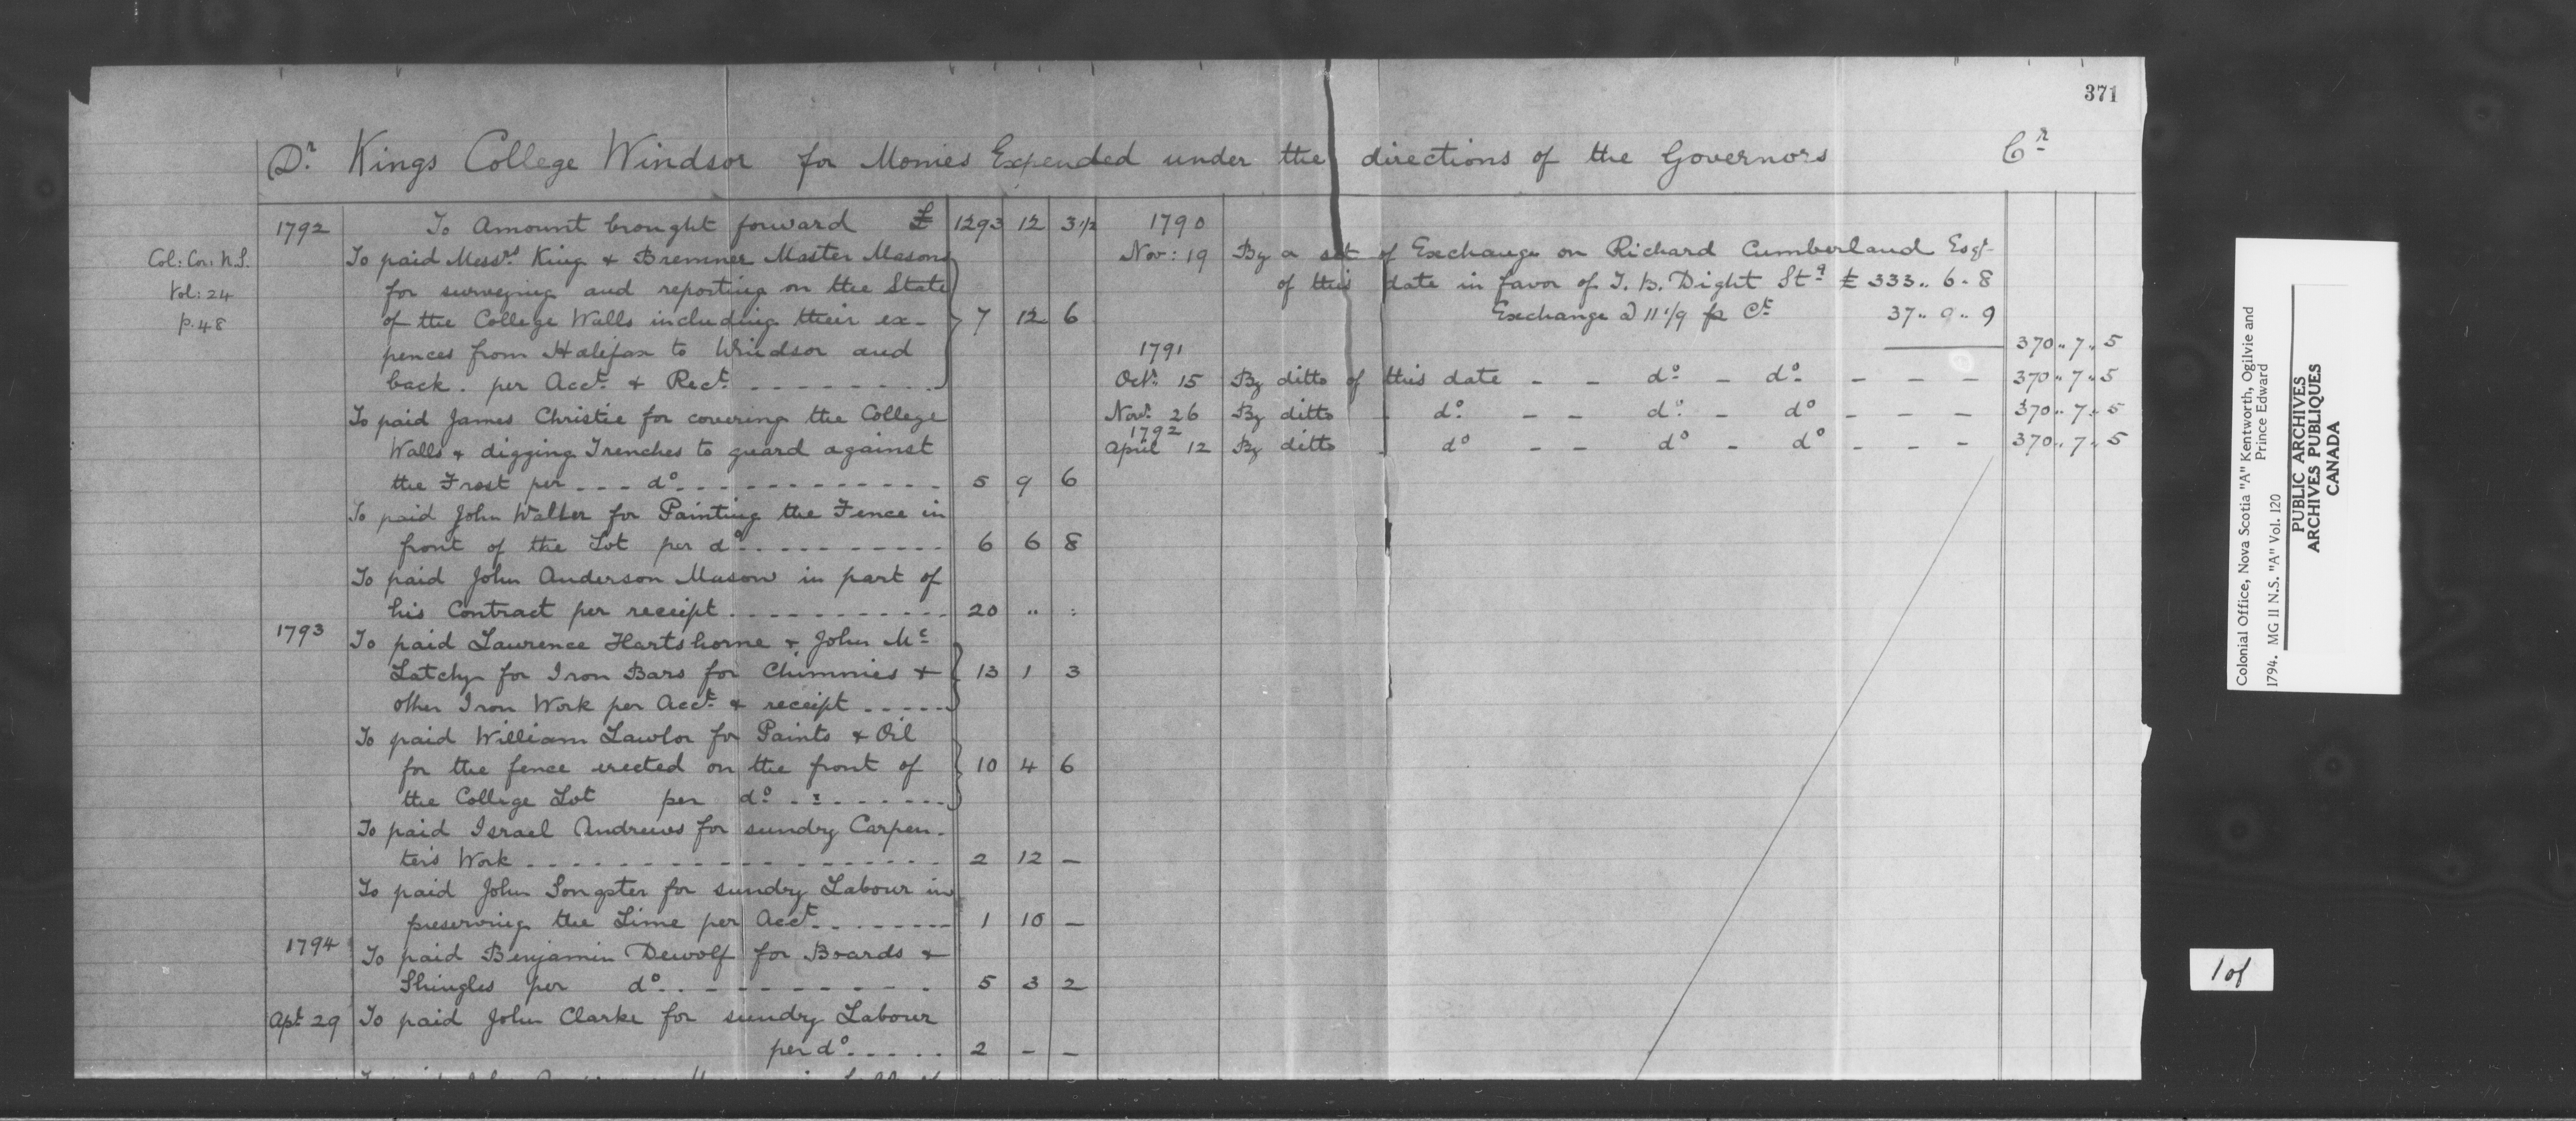 371
Dr. Kings College Windsor for Monies Expended under the directions of the Governors Cr
Col: Cor: N.S.
Vol: 24
p. 48
1792 To Amount brought forward £ 1293 12 3 1/2
To paid Messrs King & Bremner Master Masons
for surveying and reporting on the State
of the College Walls including their ex- 7 12 6
pences from Halifax to Windsor and
back. per Acct. & Rect.
To paid James Christie for covering the College
Walls & digging Trenches to guard against
the Frost per do. 5 9 6
To paid John Walker for Painting the Fence in
front of the Lot per do 6 6 8
To paid John Anderson Mason in part of
his Contract per receipt 20 " :
1793 To paid Laurence Hartshorne & John Mc
Latchy for Iron Bars for Chimnies & 13 1 3
other Iron Work per Acct. & receipt
To paid William Lawlor for Paints & Oil
for the fence erected on the front of 10 4 6
the College Lot per do.
To paid Israel Andrews for sundry Carpen-
ters Work 2 12 —
To paid John Songster for sundry Labour in
preserving the Lime per Acct. 1 10 —
1794 To paid Benjamin Dewolf for Boards &
Shingles per do. 5 3 2
Apl. 29 To paid John Clarke for sundry Labour
per do. 2 — —
1790
Nov: 19 By a set of Exchange on Richard Cumberland Esqr
of this date in favor of T. B. Dight Stg £ 333.. 6. 8
Exchange @ 11 1/9 pr Ct. 37.. 0.. 9
1791 370.. 7.. 5
Octr. 15 By ditto of this date - - do. - do. - - - 370.. 7.. 5
Novr. 26 By ditto - do. - - do. - do - - - 370.. 7.. 5
1792
April 12 By ditto - do - - do - do - - - 370.. 7.. 5
Colonial Office, Nova Scotia "A" Kentworth, Ogilvie and
Prince Edward
1794. MG II N.S. "A" Vol. 120
PUBLIC ARCHIVES
ARCHIVES PUBLIQUES
CANADA
1 of